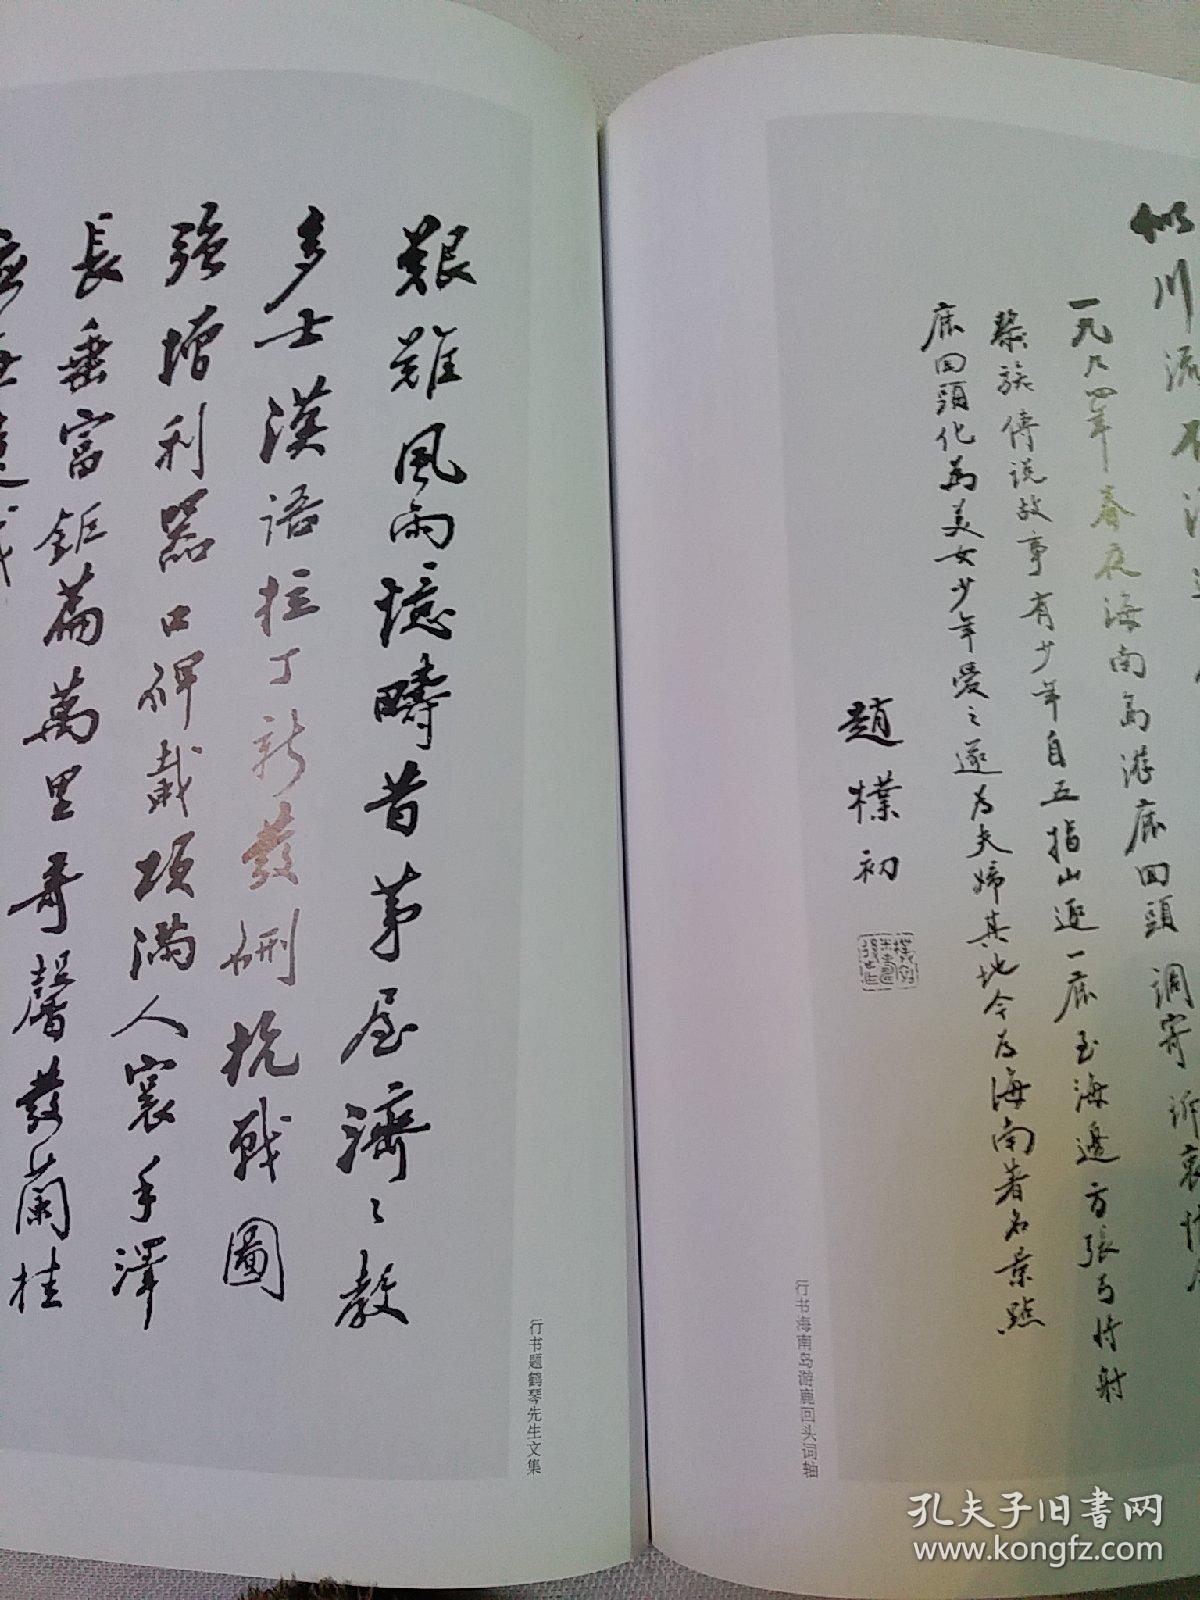 似川流不
一九九四年春夜海南島游鹿回頭調寄訴衷情
黎族傳说故事有少年自五指山逐一鹿至海邊方張弓将射
鹿回頭化為美女少年愛之遂为夫婦其地今为海南著名景點
趙樸初
行书海南岛游鹿回头词轴
艱難風雨憶疇昔茅屋濟〻教
多士漢語拉丁新發硎抗戰圖
強增利器口碑載項滿人寰手澤
長垂富鉅篇萬里奇馨發蘭桂
行书题鹤琴先生文集
孔夫子旧书网
www.kongfz.com